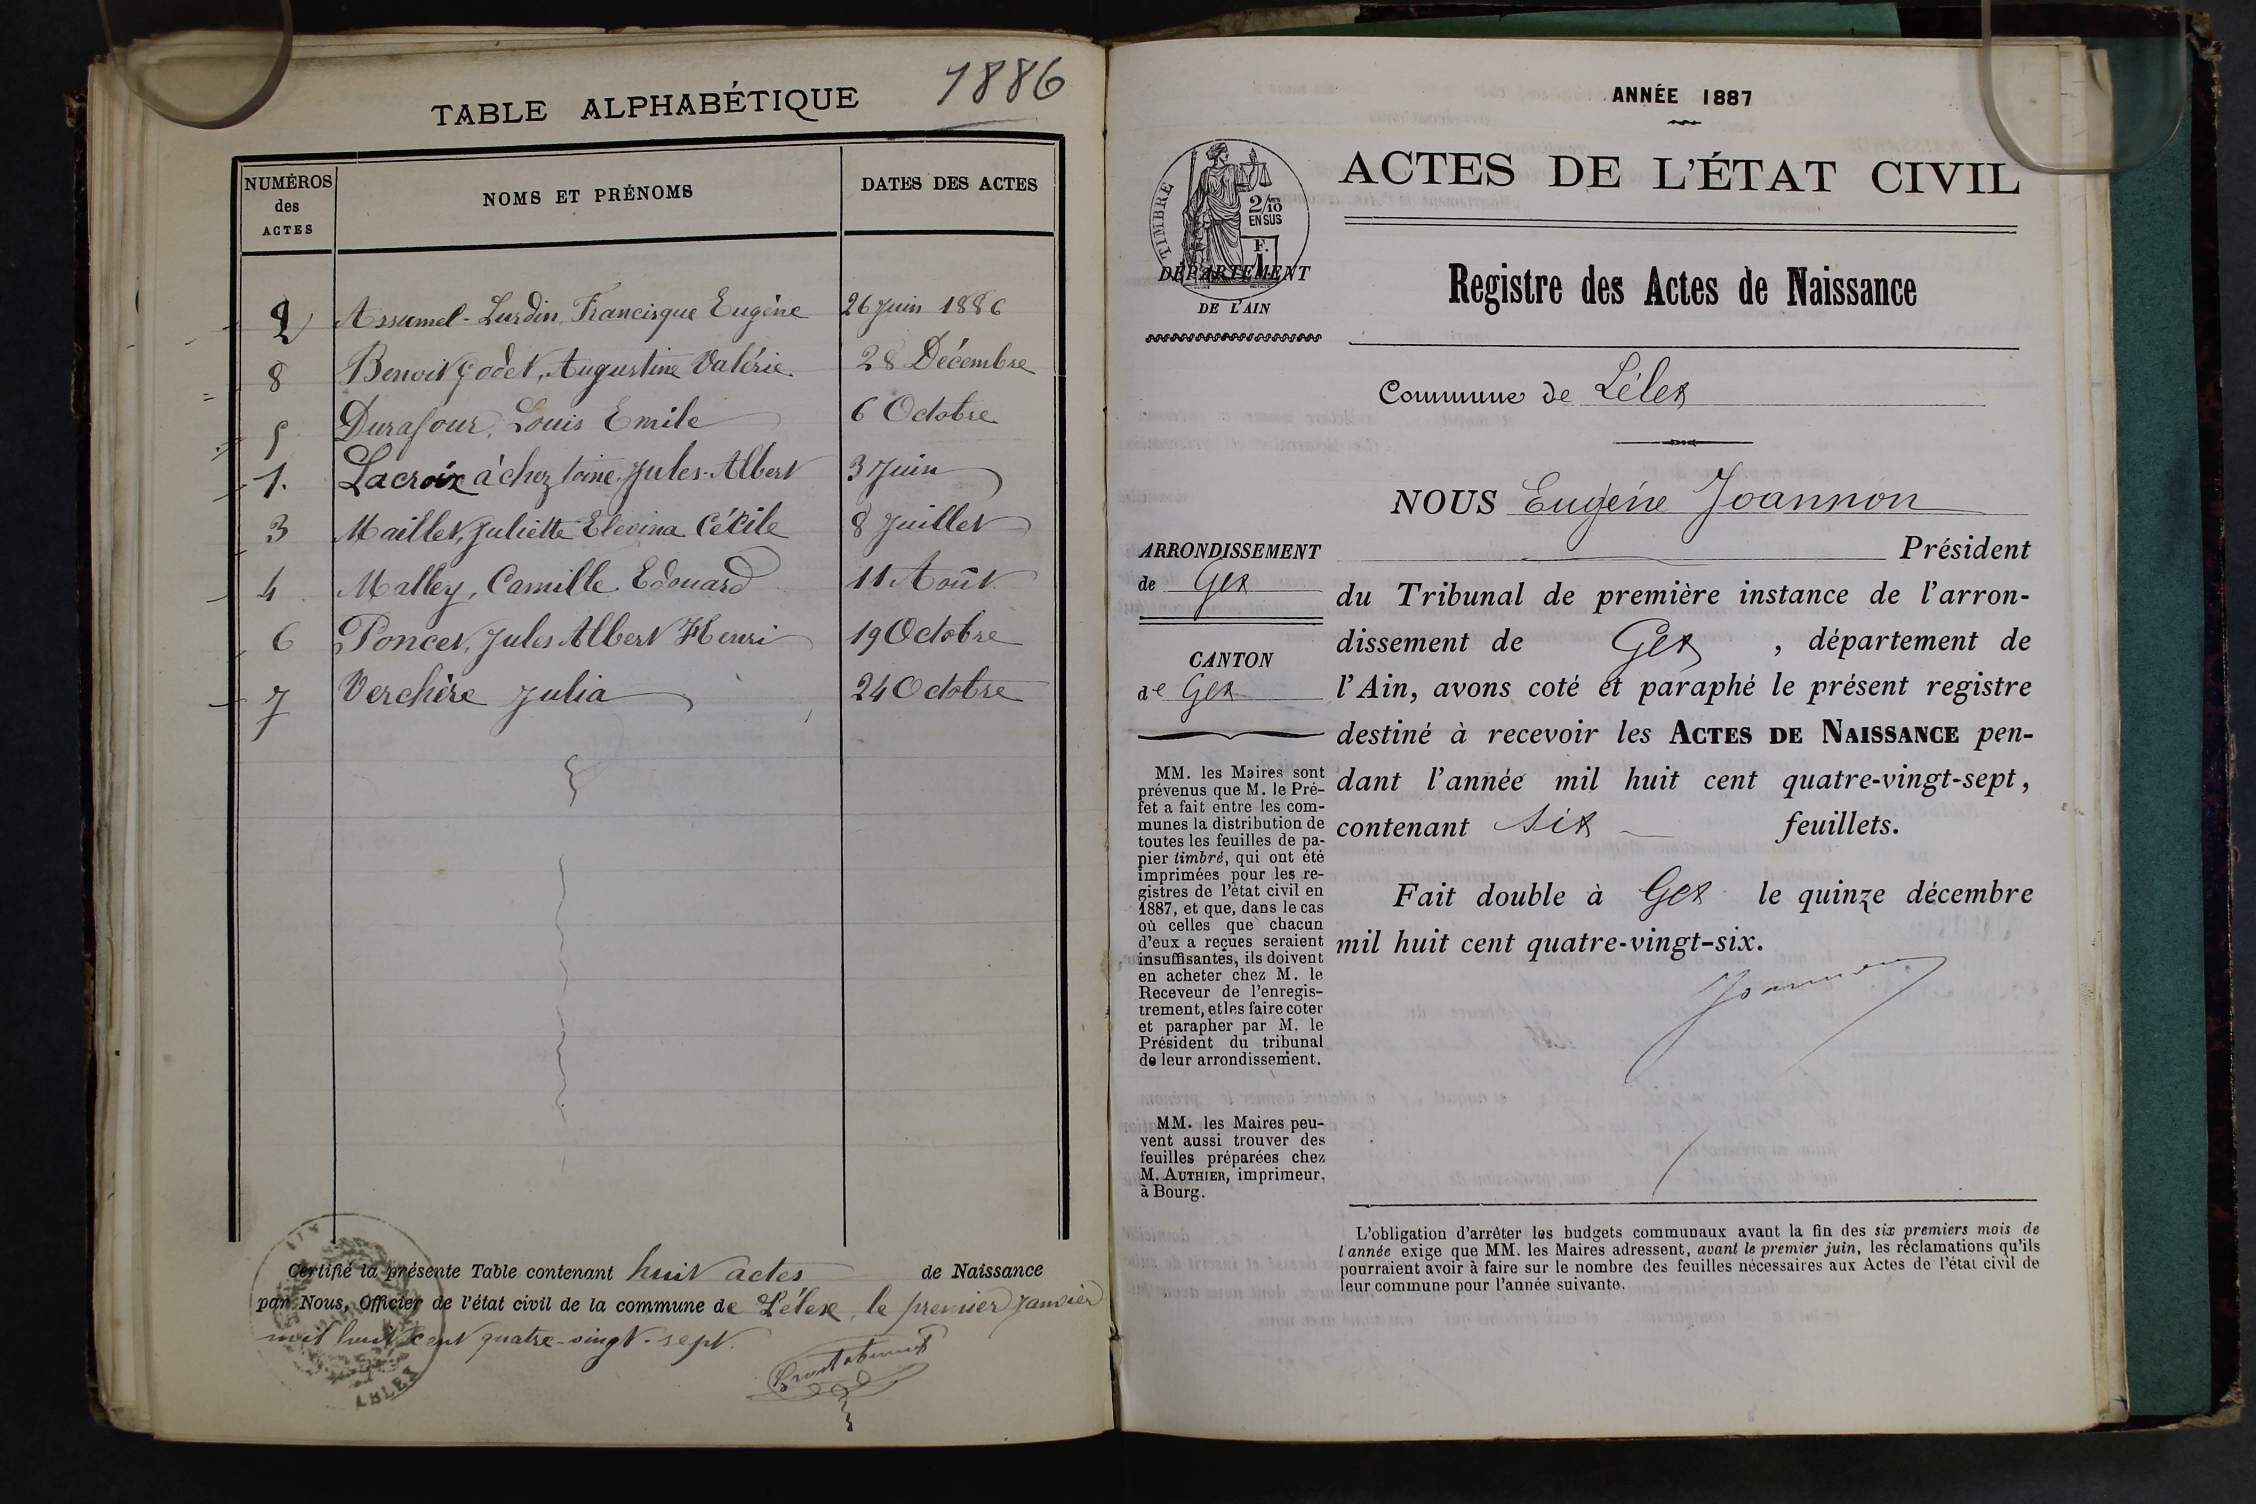 1886
TABLE ALPHABÉTIQUE
NUMÉROS des ACTES
NOMS ET PRÉNOMS
DATES DES ACTES
2 Assumel-Lurdin Francisque Eugène 26 Juin 1886
8 Benoit Godet, Augustine Valérie 28 Décembre
5 Durafour, Louis Emile 6 Octobre
1. Lacroix à chez toine, Jules-Albert 3 Juin
3 Maillet, Juliette Elevina Cécile 8 Juillet
4 Malley, Camille Edouard 11 Août
6 Poncet, Jules Albert Henri 19 Octobre
7 Verchère Julia 24 Octobre
Certifié la présente Table contenant huit actes de Naissance
par Nous, Officier de l'état civil de la commune de Lélex, le premier Janvier
mil huit cent quatre-vingt-sept.
ANNÉE 1887
TIMBRE
2/10
EN SUS
F.
1
DÉPARTEMENT
DE L'AIN
ACTES DE L'ÉTAT CIVIL
Registre des Actes de Naissance
Commune de Lélex
ARRONDISSEMENT
de Gex
CANTON
de Gex
MM. les Maires sont
prévenus que M. le Pré-
fet a fait entre les com-
munes la distribution de
toutes les feuilles de pa-
pier timbré, qui ont été
imprimées pour les re-
gistres de l'état civil en
1887, et que, dans le cas
où celles que chacun
d'eux a reçues seraient
insuffisantes, ils doivent
en acheter chez M. le
Receveur de l'enregis-
trement, et les faire coter
et parapher par M. le
Président du tribunal
de leur arrondissement.
MM. les Maires peu-
vent aussi trouver des
feuilles préparées chez
M. AUTHIER, imprimeur,
à Bourg.
NOUS Eugène Joannon
Président
du Tribunal de première instance de l'arron-
dissement de Gex, département de
l'Ain, avons coté et paraphé le présent registre
destiné à recevoir les ACTES DE NAISSANCE pen-
dant l'année mil huit cent quatre-vingt-sept,
contenant six feuillets.
Fait double à Gex le quinze décembre
mil huit cent quatre-vingt-six.
Joannon
L'obligation d'arrêter les budgets communaux avant la fin des six premiers mois de
l'année exige que MM. les Maires adressent, avant le premier juin, les réclamations qu'ils
pourraient avoir à faire sur le nombre des feuilles nécessaires aux Actes de l'état civil de
leur commune pour l'année suivante.